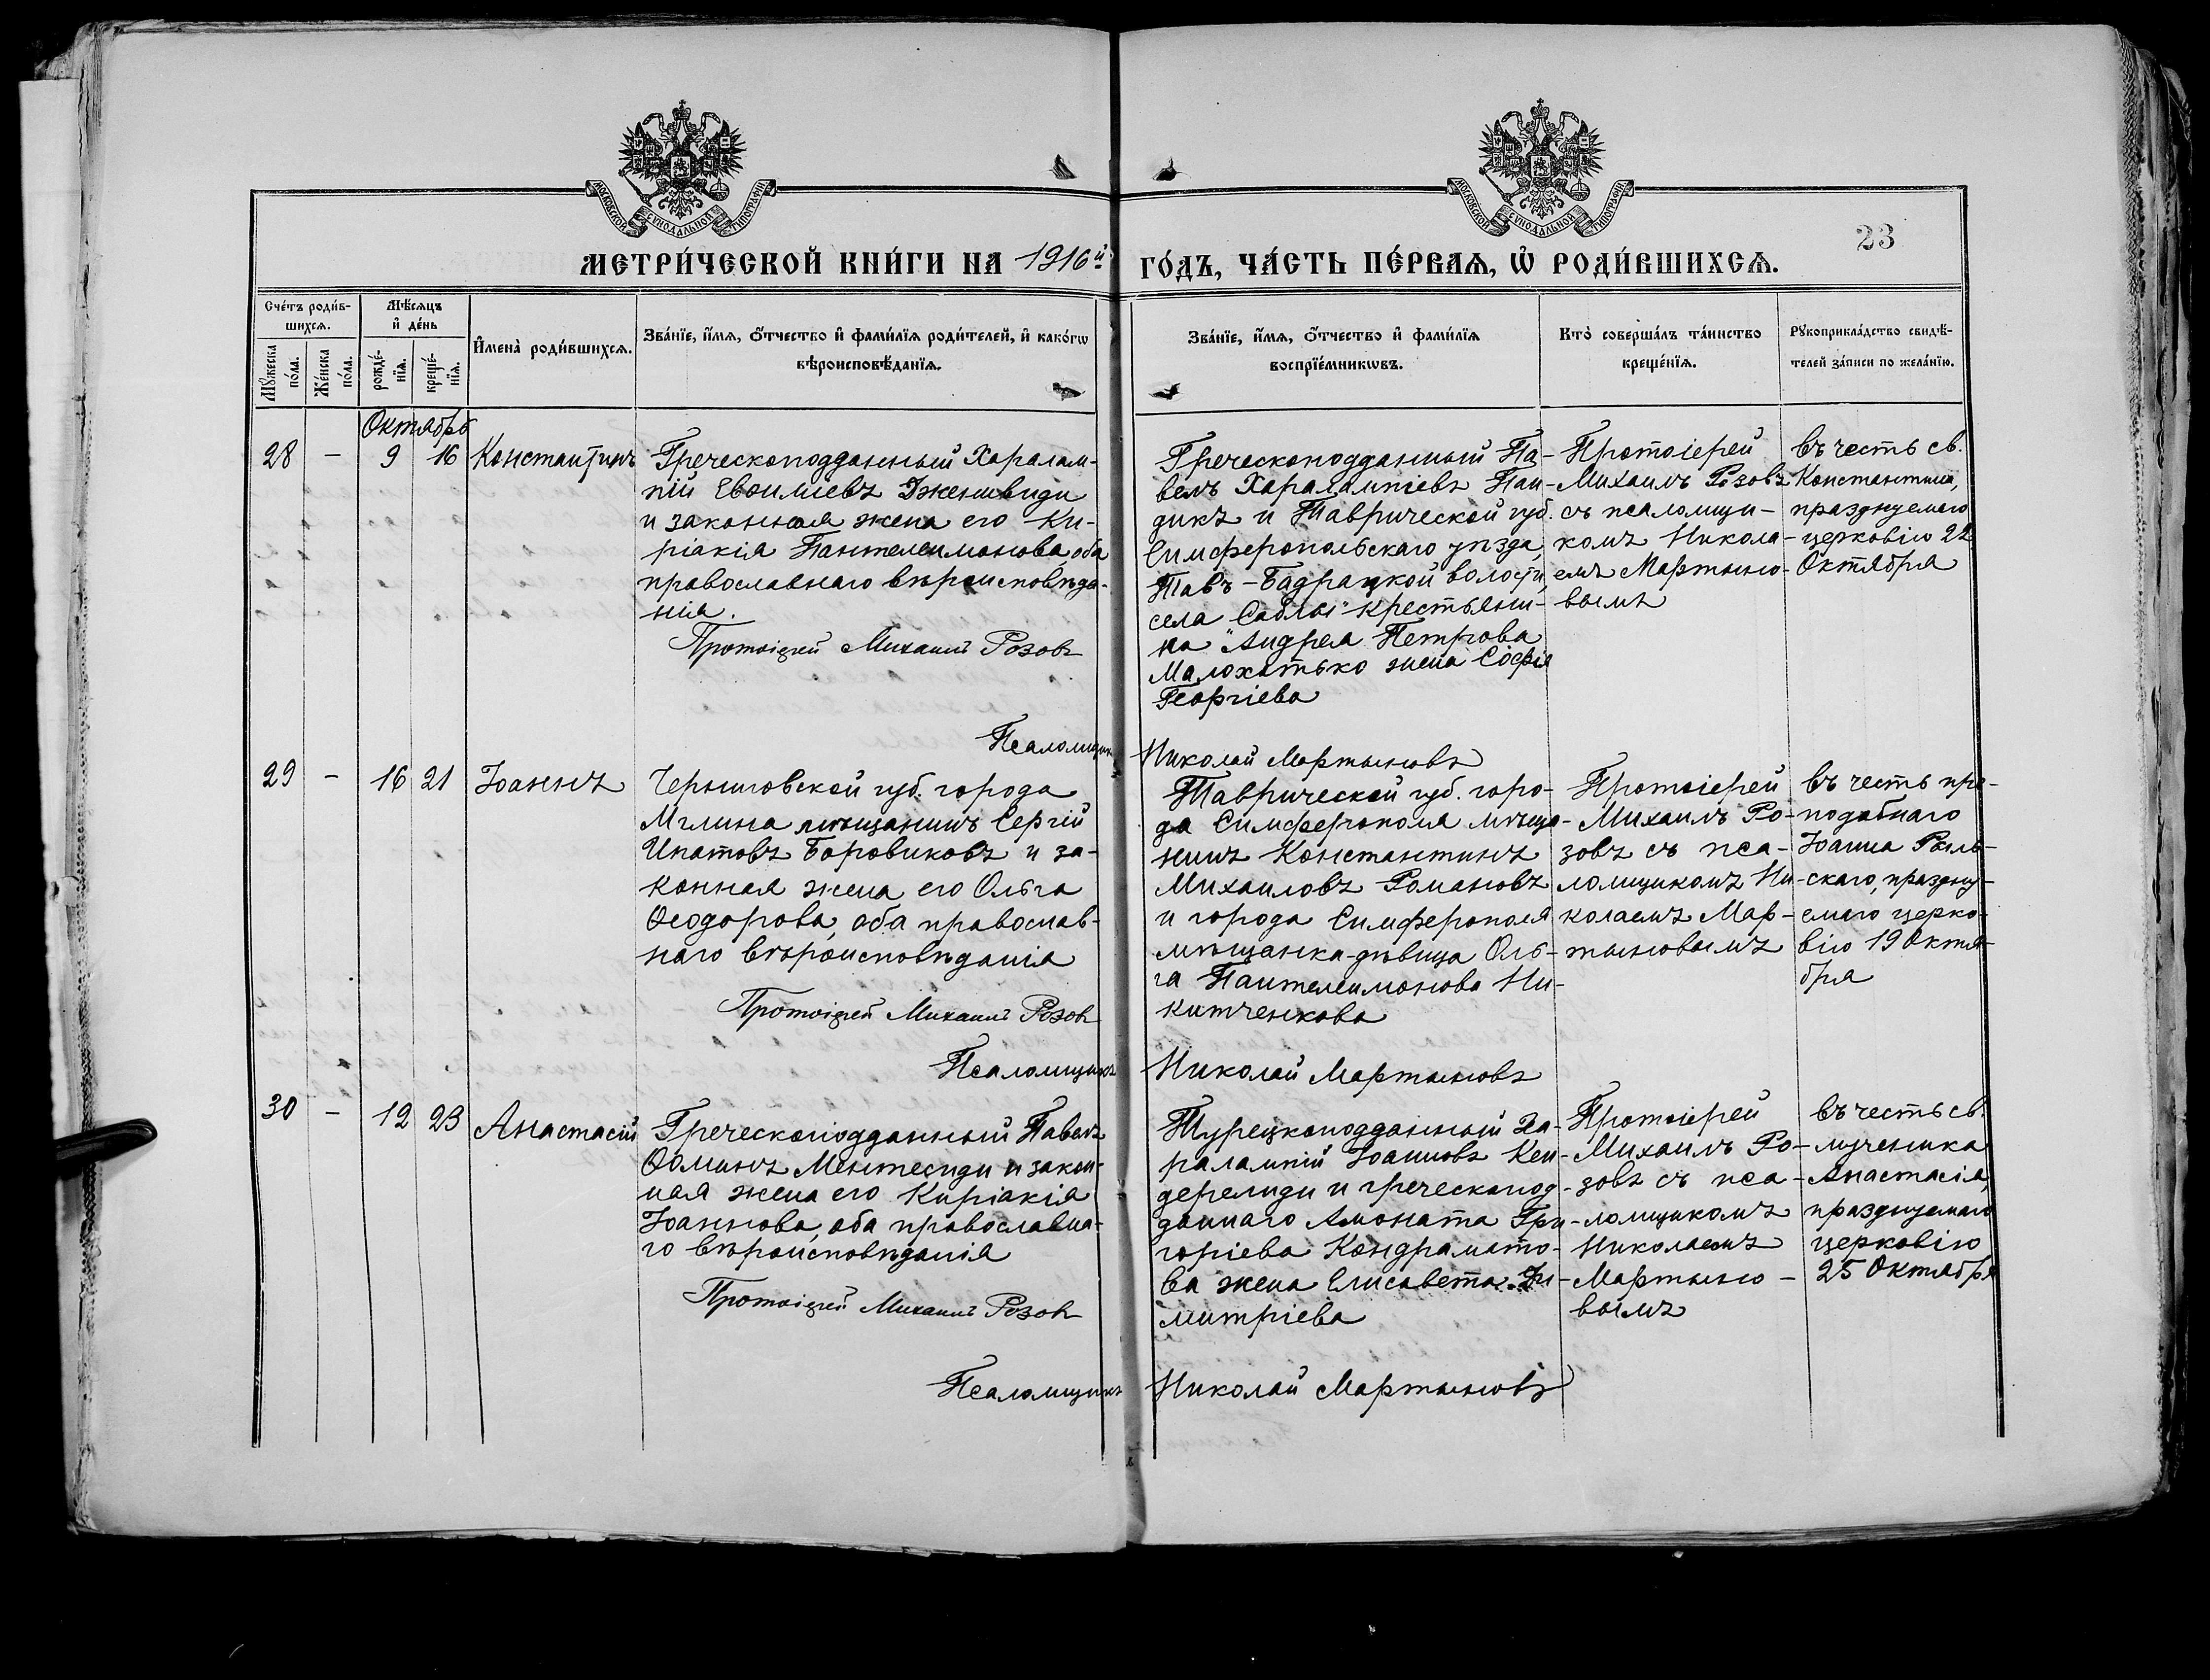 МОСКОВСКОЙ СѴНОДАЛЬНОЙ ТИПОГРАФІИ
МОСКОВСКОЙ СѴНОДАЛЬНОЙ ТИПОГРАФІИ
23
МЕТРИ́ЧЕСКОЙ КНИ́ГИ НА 1916й ГО́ДЪ, ЧА́СТЬ ПЕ́РВАЯ, Ѡ РОДИ́ВШИХСѦ.
Сче́тъ роди́в-
шихсѧ.
Мꙋжеска по́ла.
Же́нска по́ла.
Мѣ́сѧцъ
и҆ де́нь
рожде́-
нїѧ.
креще́-
нїѧ.
И҆мена̀ роди́вшихсѧ.
Зва́нїе, и҆́мѧ, ѻ҆́тчество и҆ фами́лїѧ роди́телей, и҆ како́гѡ
вѣроисповѣ́данїѧ.
Зва́нїе, и҆́мѧ, ѻ҆́тчество и҆ фами́лїѧ
воспрїе́мникѡвъ.
Кто̀ соверша́лъ та́инство
креще́нїѧ.
Рꙋкоприкла́дство свидѣ́-
телей за́писи по жела́нїю.
Октябрь
28 — 9 16 Константинъ
Греческоподданный Харалам-
пій Евѳиміевъ Дженивиди
и законная жена его Ки-
ріакія Пантелеимонова, оба
православнаго вѣроисповѣда-
нія.
Протоіерей Михаилъ Розовъ
Греческоподданный Па-
велъ Харалампіевъ Паи-
дикъ и Таврической губ.
Симферопольскаго уѣзда,
Тавъ-Бадракской волости,
села "Саблы" крестьяни-
на Андрея Петрова
Малохатько жена Софія
Георгіева
Протоіерей
Михаилъ Розовъ
съ псаломщи-
комъ Никола-
емъ Мартыно-
вымъ
въ честь св.
Константина,
празднуемаго
церковію 22
Октября
Псаломщикъ Николай Мартыновъ
29 — 16 21 Іоаннъ
Черниговской губ. города
Мглина мѣщанинъ Сергій
Ипатовъ Боровиковъ и за-
конная жена его Ольга
Ѳеодорова, оба православ-
наго вѣроисповѣданія
Протоіерей Михаилъ Розовъ
Таврической губ. горо-
да Симферополя мѣща-
нинъ Константинъ
Михаиловъ Романовъ
и города Симферополя
мѣщанка-дѣвица Оль-
га Пантелеимонова Ни-
китченкова
Протоіерей
Михаилъ Ро-
зовъ съ пса-
ломщикомъ Ни-
колаемъ Мар-
тыновымъ
въ честь пре-
подобнаго
Іоанна Рыль-
скаго, праздну-
емаго церко-
вію 19 Октя-
бря
Псаломщикъ Николай Мартыновъ
30 — 12 23 Анастасій
Греческоподданный Павелъ
Ѳоминъ Ментесиди и закон-
ная жена его Киріакія
Іоаннова, оба православна-
го вѣроисповѣданія
Протоіерей Михаилъ Розовъ
Турецкоподданный Ха-
ралампій Іоанновъ Кен-
дерелиди и греческопод-
даннаго Амоната Гри-
горіева Кондрамато-
ва жена Елисавета Ди-
митріева
Протоіерей
Михаилъ Ро-
зовъ съ пса-
ломщикомъ
Николаемъ
Мартыно-
вымъ
въ честь св.
мученика
Анастасія,
празднуемаго
церковію
25 Октября
Псаломщикъ Николай Мартыновъ